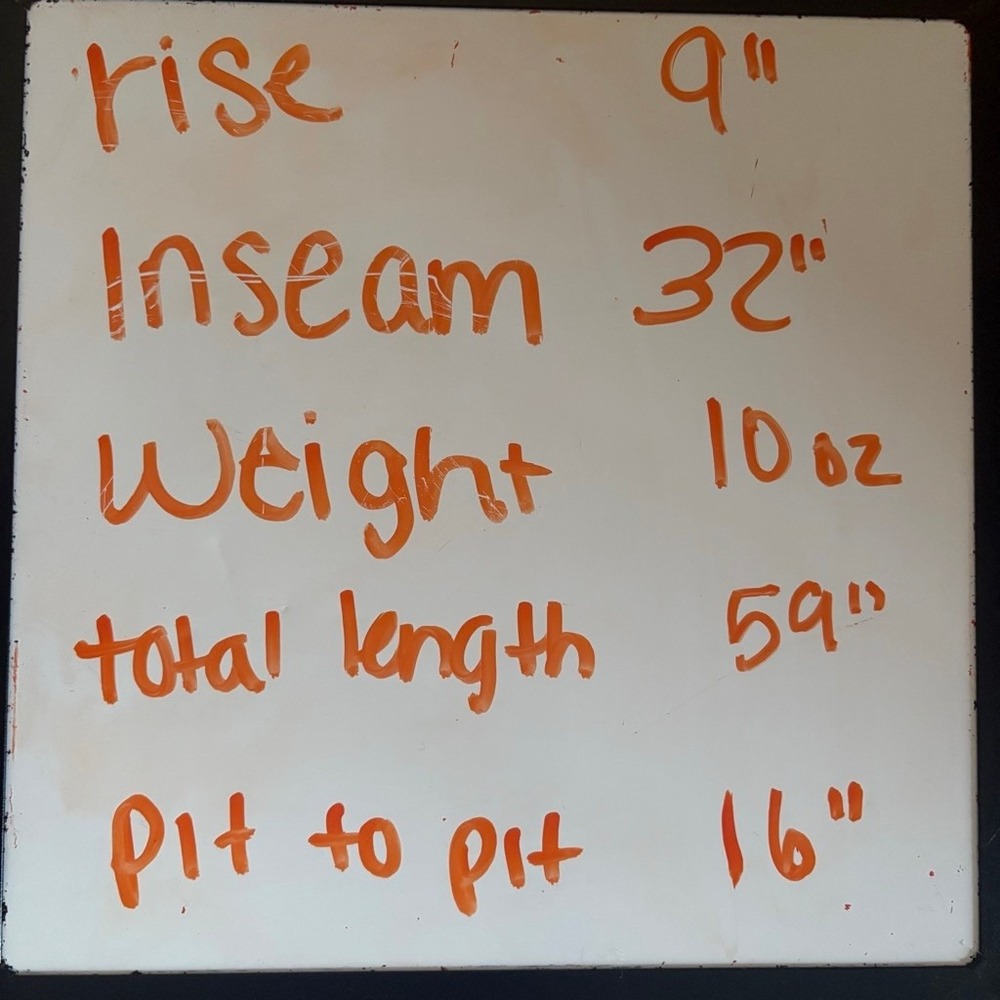 rise 9"
Inseam 32"
Weight 10 oz
total length 59"
pit to pit 16"